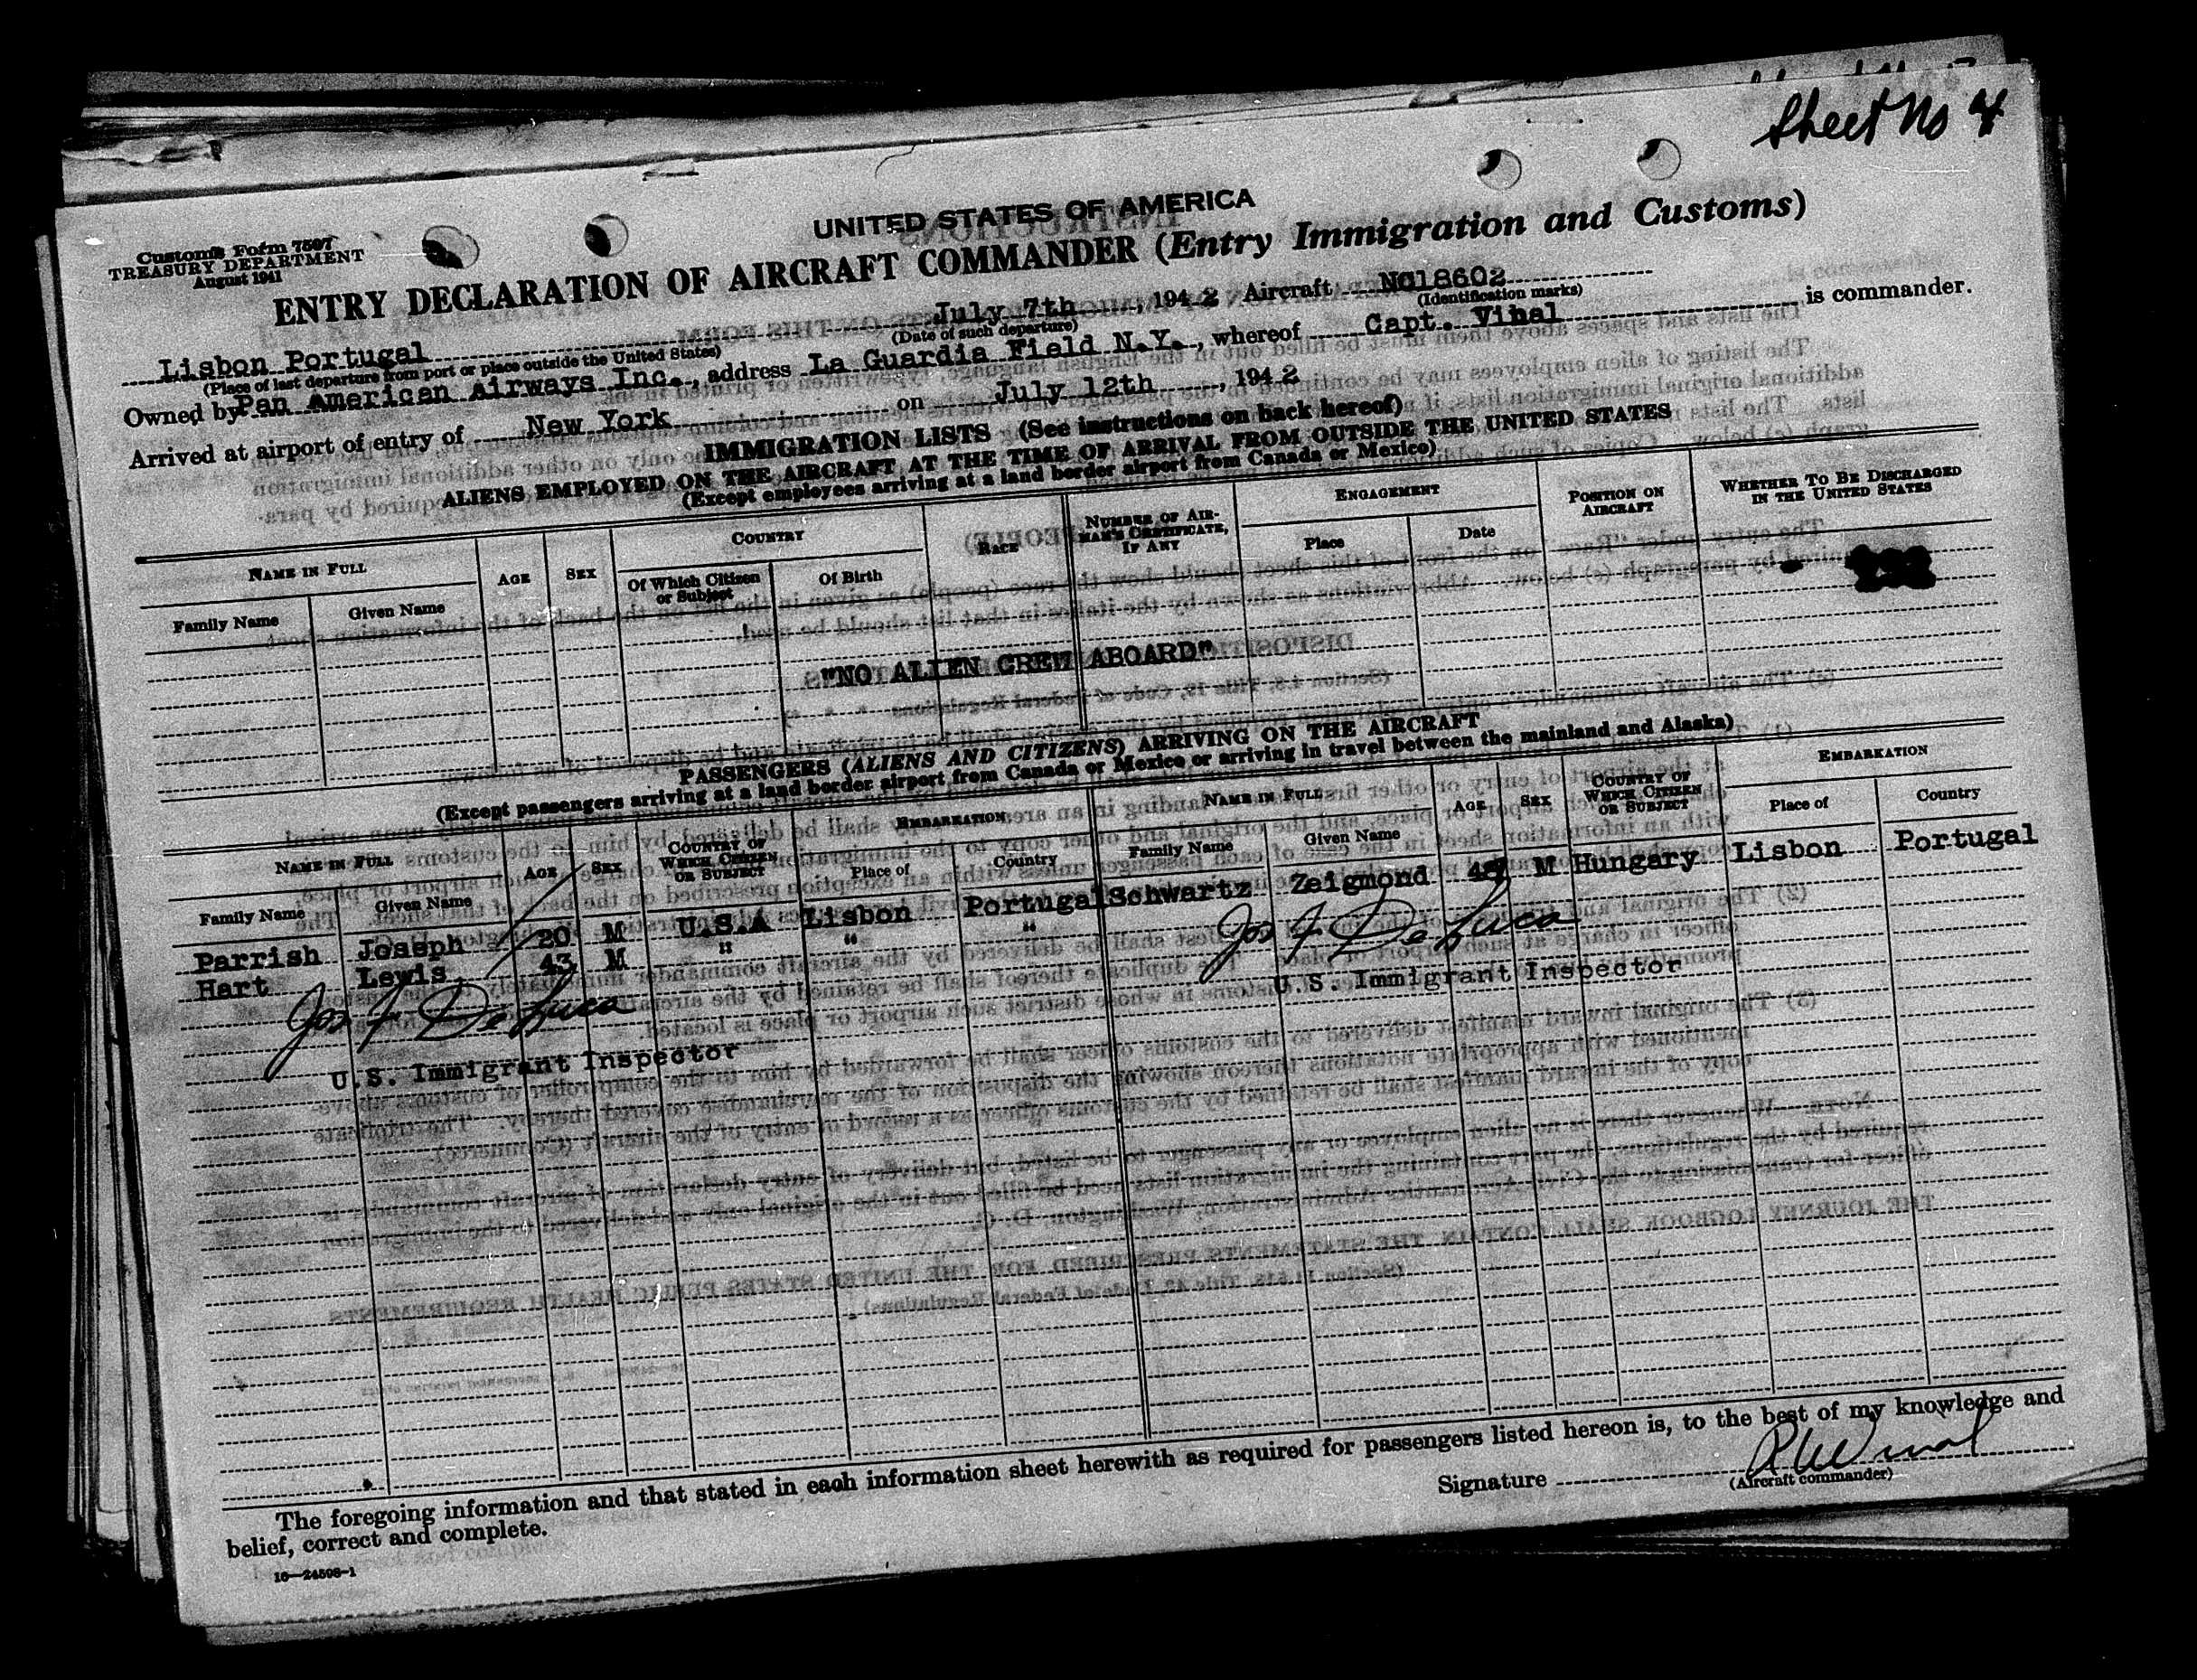 Sheet No 4
UNITED STATES OF AMERICA
Customs Form 7507
TREASURY DEPARTMENT
August 1941
ENTRY DECLARATION OF AIRCRAFT COMMANDER (Entry Immigration and Customs)
Lisbon Portugal July 7th, 1942 Aircraft NC18602
(Place of last departure from port or place outside the United States) (Date of such departure) (Identification marks)
Owned by Pan American Airways Inc., address La Guardia Field N.Y., whereof Capt. Vinal is commander.
Arrived at airport of entry of New York on July 12th, 1942
IMMIGRATION LISTS (See instructions on back hereof)
ALIENS EMPLOYED ON THE AIRCRAFT AT THE TIME OF ARRIVAL FROM OUTSIDE THE UNITED STATES
(Except employees arriving at a land border airport from Canada or Mexico)
NAME IN FULL AGE SEX COUNTRY RACE NUMBER OF AIRMAN'S CERTIFICATE, IF ANY ENGAGEMENT POSITION ON AIRCRAFT WHETHER TO BE DISCHARGED IN THE UNITED STATES
Family Name Given Name Of Which Citizen or Subject Of Birth Place Date
"NO ALIEN CREW ABOARD"
PASSENGERS (ALIENS AND CITIZENS) ARRIVING ON THE AIRCRAFT
(Except passengers arriving at a land border airport from Canada or Mexico or arriving in travel between the mainland and Alaska)
NAME IN FULL AGE SEX COUNTRY OF WHICH CITIZEN OR SUBJECT EMBARKATION NAME IN FULL AGE SEX COUNTRY OF WHICH CITIZEN OR SUBJECT EMBARKATION
Family Name Given Name Place of Country Family Name Given Name Place of Country
Parrish Joseph 20 M U.S.A Lisbon Portugal Schwartz Zeigmond M Hungary Lisbon Portugal
Hart Lewis 43 M " " "
Jos F DeLuca Jos F DeLuca
U.S. Immigrant Inspector U.S. Immigrant Inspector
The foregoing information and that stated in each information sheet herewith as required for passengers listed hereon is, to the best of my knowledge and
belief, correct and complete.
Signature
(Aircraft commander)
16—24598-1